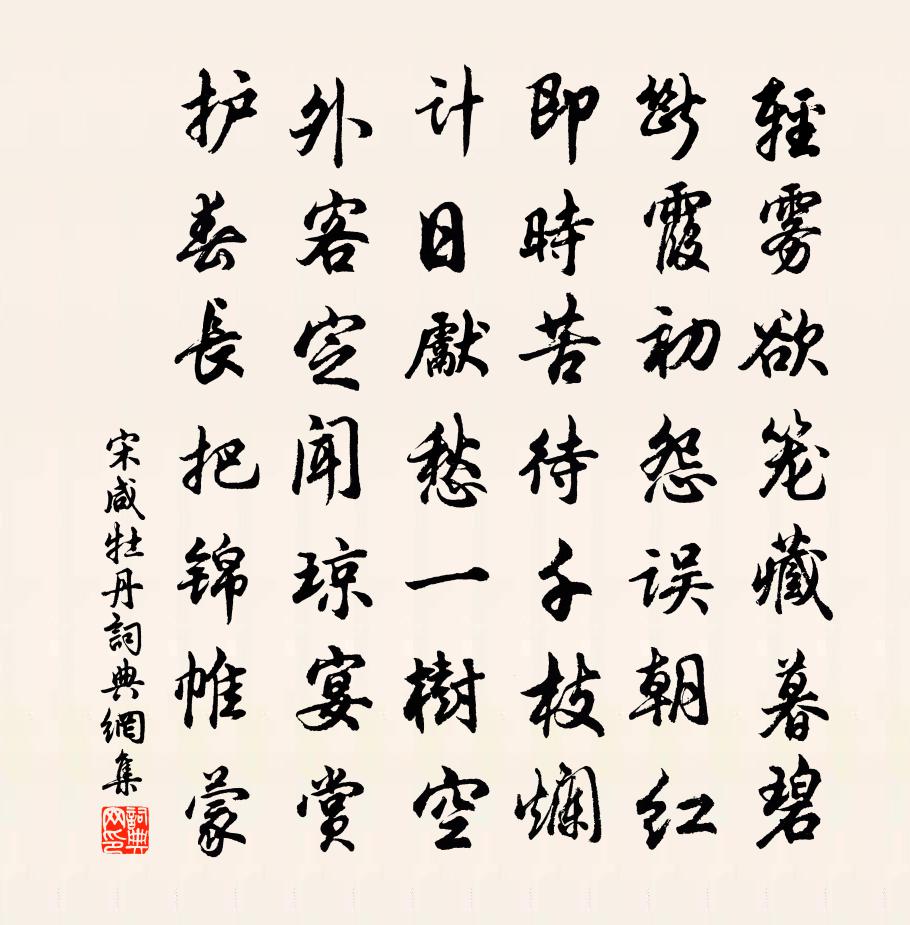 輕雾欲笼藏暮碧
断霞初怨误朝红
即時苦待千枝爛
计日獻愁一樹空
外客定闻琼宴赏
护春長把锦帷蒙
宋咸牡丹詞典網集
詞典网印